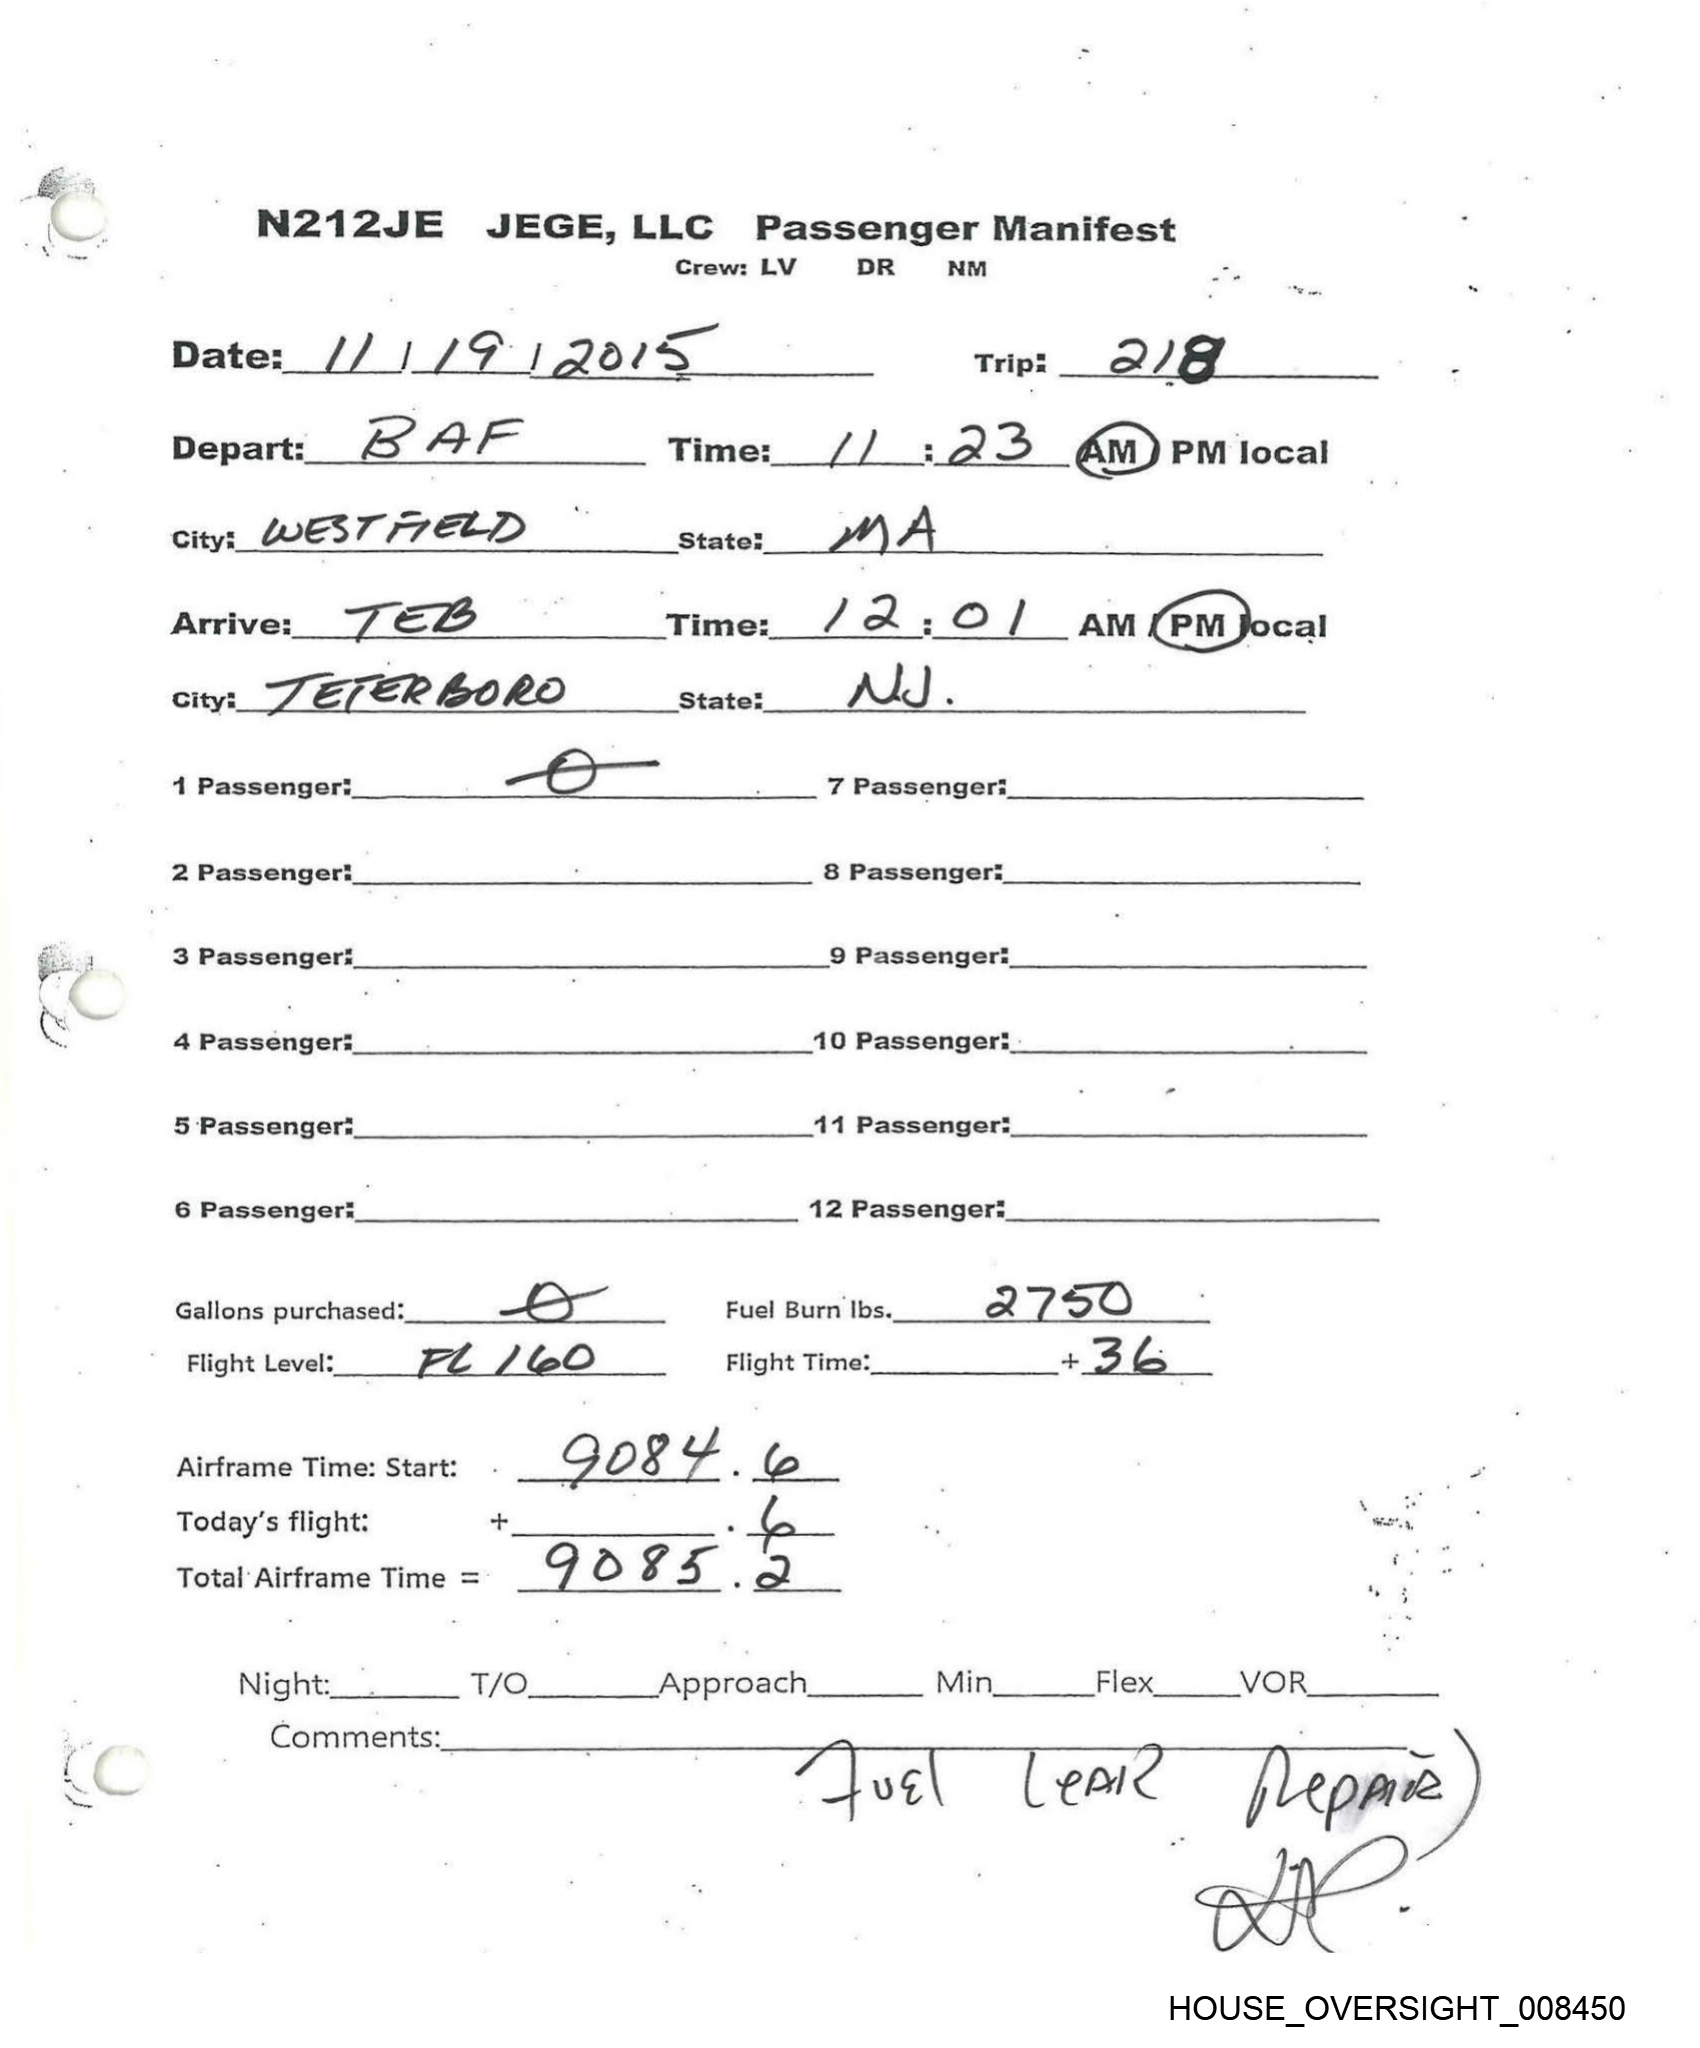 N212JE JEGE, LLC Passenger Manifest
Crew: LV DR NM
Date: 11 / 19 / 2015 Trip: 218
Depart: BAF Time: 11 : 23 AM / PM local
City: WESTFIELD State: MA
Arrive: TEB Time: 12 : 01 AM / PM local
City: TETERBORO State: NJ.
1 Passenger: 0 7 Passenger:
2 Passenger: 8 Passenger:
3 Passenger: 9 Passenger:
4 Passenger: 10 Passenger:
5 Passenger: 11 Passenger:
6 Passenger: 12 Passenger:
Gallons purchased: 0 Fuel Burn lbs. 2750
Flight Level: FL 160 Flight Time: + 36
Airframe Time: Start: 9084 . 6
Today's flight: + . 6
Total Airframe Time = 9085 . 2
Night: T/O Approach Min Flex VOR
Comments:
FUEL LEAK Repair)
HOUSE_OVERSIGHT_008450